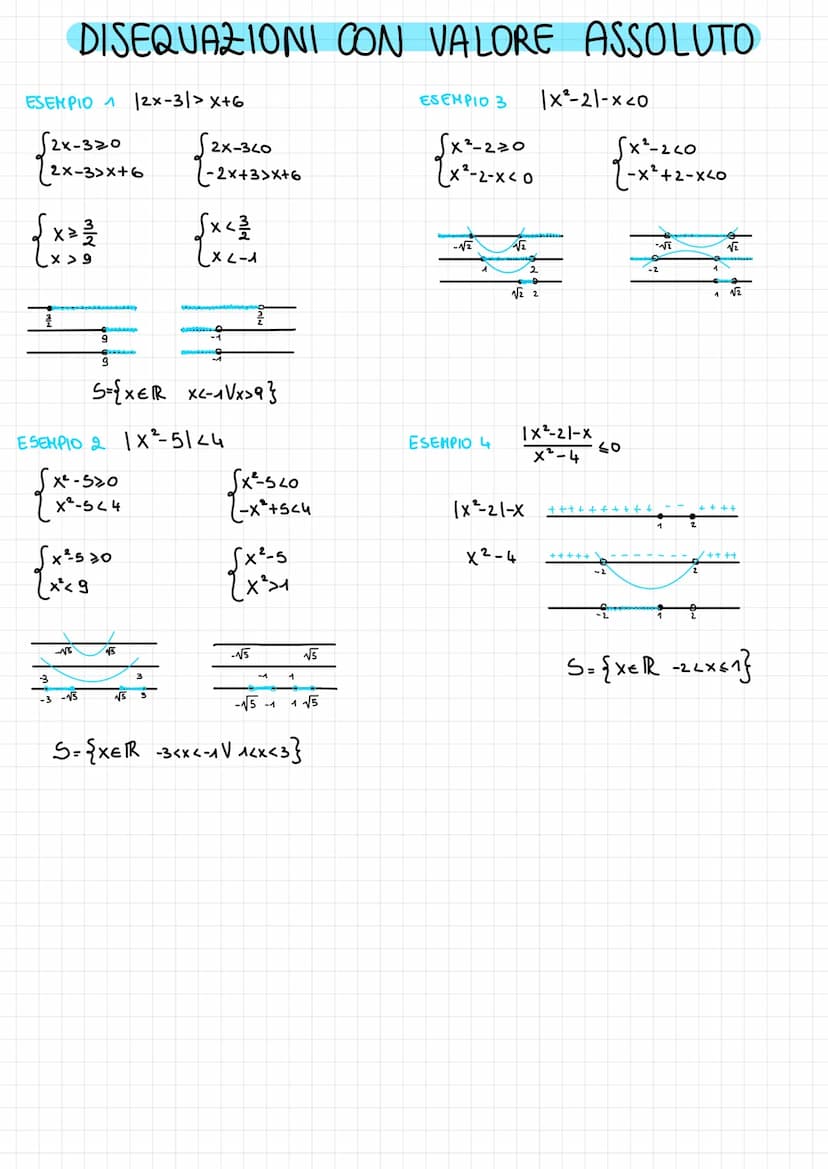 DISEQUAZIONI CON VALORE ASSOLUTO
ESEMPIO 1 |2x-3|> x+6
{2x-3≥0 {2x-3<0
{2x-3>x+6 {-2x+3>x+6
{x≥3/2 {x<3/2
{x>9 {x<-1
3/2 3/2
9 -1
9 -1
S={x∈ℝ x<-1∨x>9}
ESEMPIO 2 |x²-5|<4
{x²-5≥0 {x²-5<0
{x²-5<4 {-x²+5<4
{x²-5≥0 {x²-5
{x²<9 {x²>1
-√5 √5 -√5 √5
-3 3 -1 1
-3 -√5 √5 3 -√5 -1 1 √5
S={x∈ℝ -3<x<-1∨1<x<3}
ESEMPIO 3 |x²-2|-x<0
{x²-2≥0 {x²-2<0
{x²-2-x<0 {-x²+2-x<0
-√2 √2 -√2 √2
1 2 -2 1
√2 2 1 √2
ESEMPIO 4 |x²-2|-x/x²-4 ≤0
|x²-2|-x ++++++++++ -- ++++
1 2
x²-4 +++++ ------- ++++
-2 2
-2 1 2
S={x∈ℝ -2<x≤1}